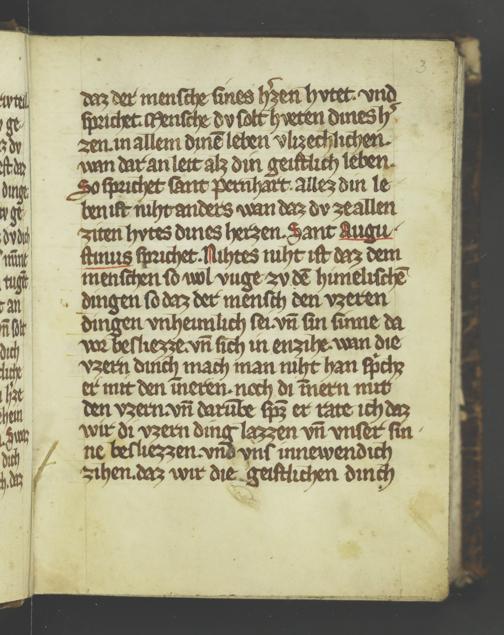 3
daz der mensche sines h̾zen hvtet. vnd
sprichet. Mensche dv solt hveten dines h̾
zen. in allem dinē leben vlizechlichen.
wan dar an leit alz din geistlich leben.
So sprichet sant Pernhart. allez din le
ben ist niht anders wan daz dv ze allen
ziten hvtes dines herzen. Sant Augu
stinus sprichet. Nihtes niht ist daz dem
menschen so wol vuge zv dē himelischē
dingen so daz der mensch den vzeren
dingen vnheimlich sei. vn̄ sin sinne da
vor besliezze. vn̄ sich in enzihe. wan die
vzern dinch mach man niht han sp̾chz
er mit den īneren. noch di īnern mit
den vzern. vn̄ darūbe sp̾z er rate ich daz
wir di vzern ding lazzen vn̄ vnser sin
ne besliezzen. vnd vns innewendich
zihen. daz wir die geistlichen dinch